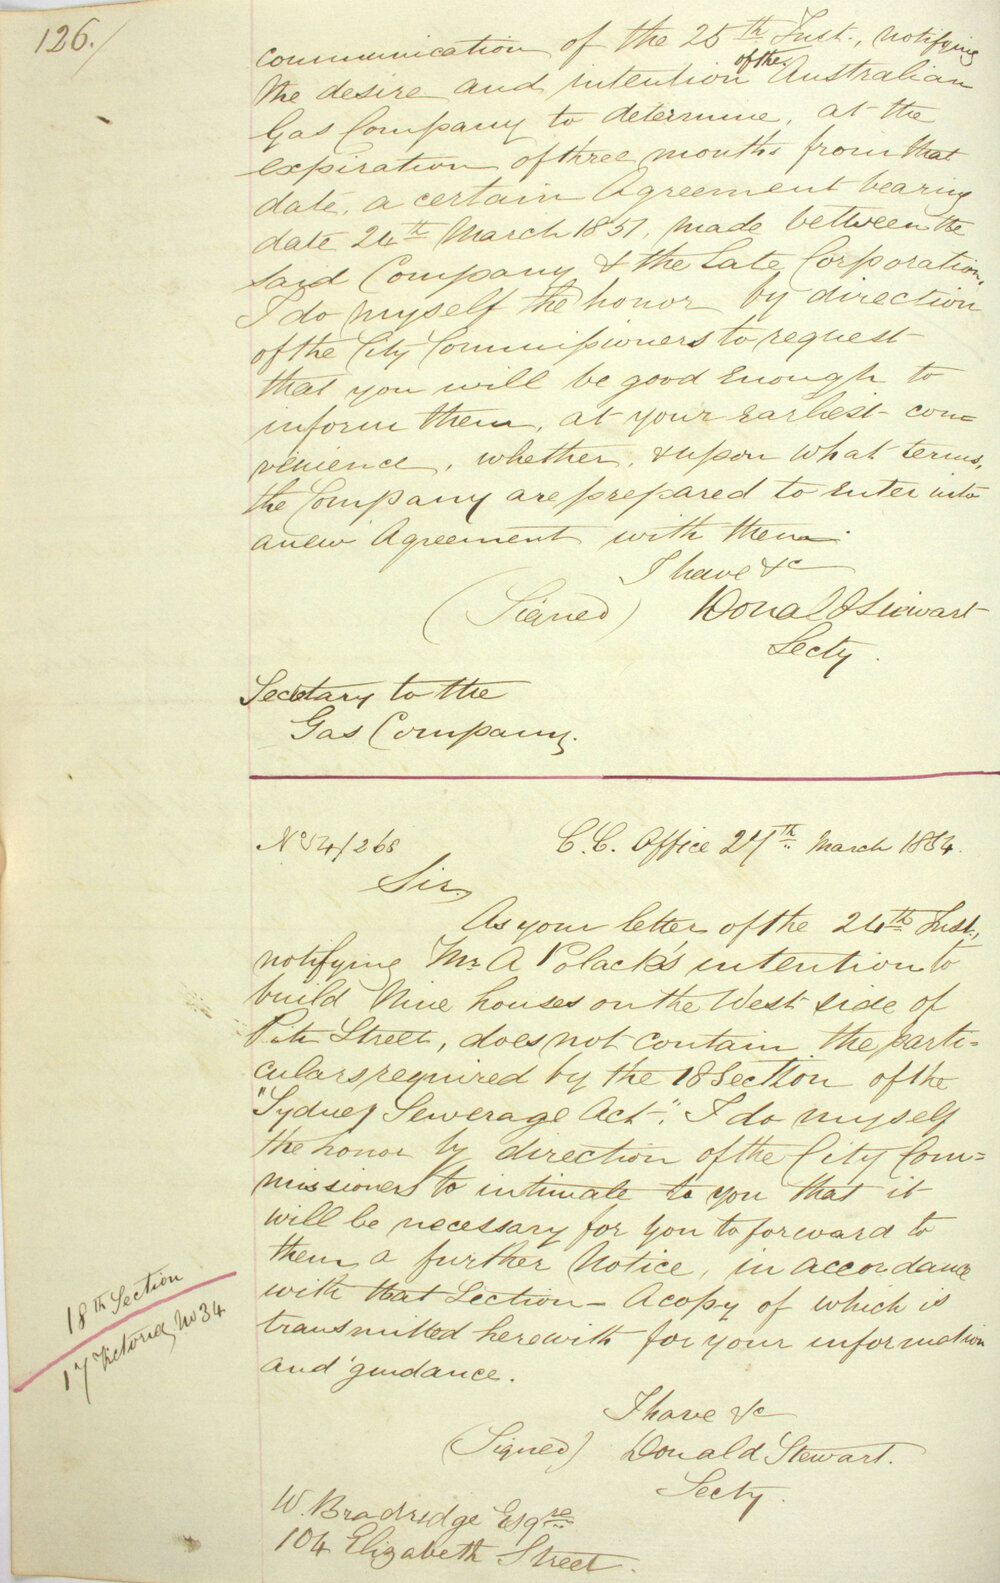 126.
communication of the 25th Inst., notifying
the desire and intention of the Australian
Gas Company to determine, at the
expiration of three months from that
date, a certain Agreement bearing
date 24th March 1851, made between the
said Company & the Late Corporation,
I do myself the honor by direction
of the City Commissioners to request
that you will be good enough to
inform them, at your earliest con=
venience, whether, & upon what terms,
the Company are prepared to enter into
a new Agreement with them.
I have &c
(Signed) Donald Stewart
Secty.
Secretary to the
Gas Company.
No 54/268
C.C. Office 27th March 1854.
Sir,
As your letter of the 24th Inst,
notifying Mr A Polack's intention to
build Nine houses on the West side of
Pitt Street, does not contain the parti=
culars required by the 18 Section of the
"Sydney Sewerage Act", I do myself
the honor by direction of the City Com=
missioners to intimate to you that it
will be necessary for you to forward to
them a further Notice, in accordance
with that Section - A copy of which is
transmitted herewith for your information
and guidance.
18th Section
17 Victoria No 34
I have &c
(Signed) Donald Stewart.
Secty.
W. Bradridge Esqre
104 Elizabeth Street.